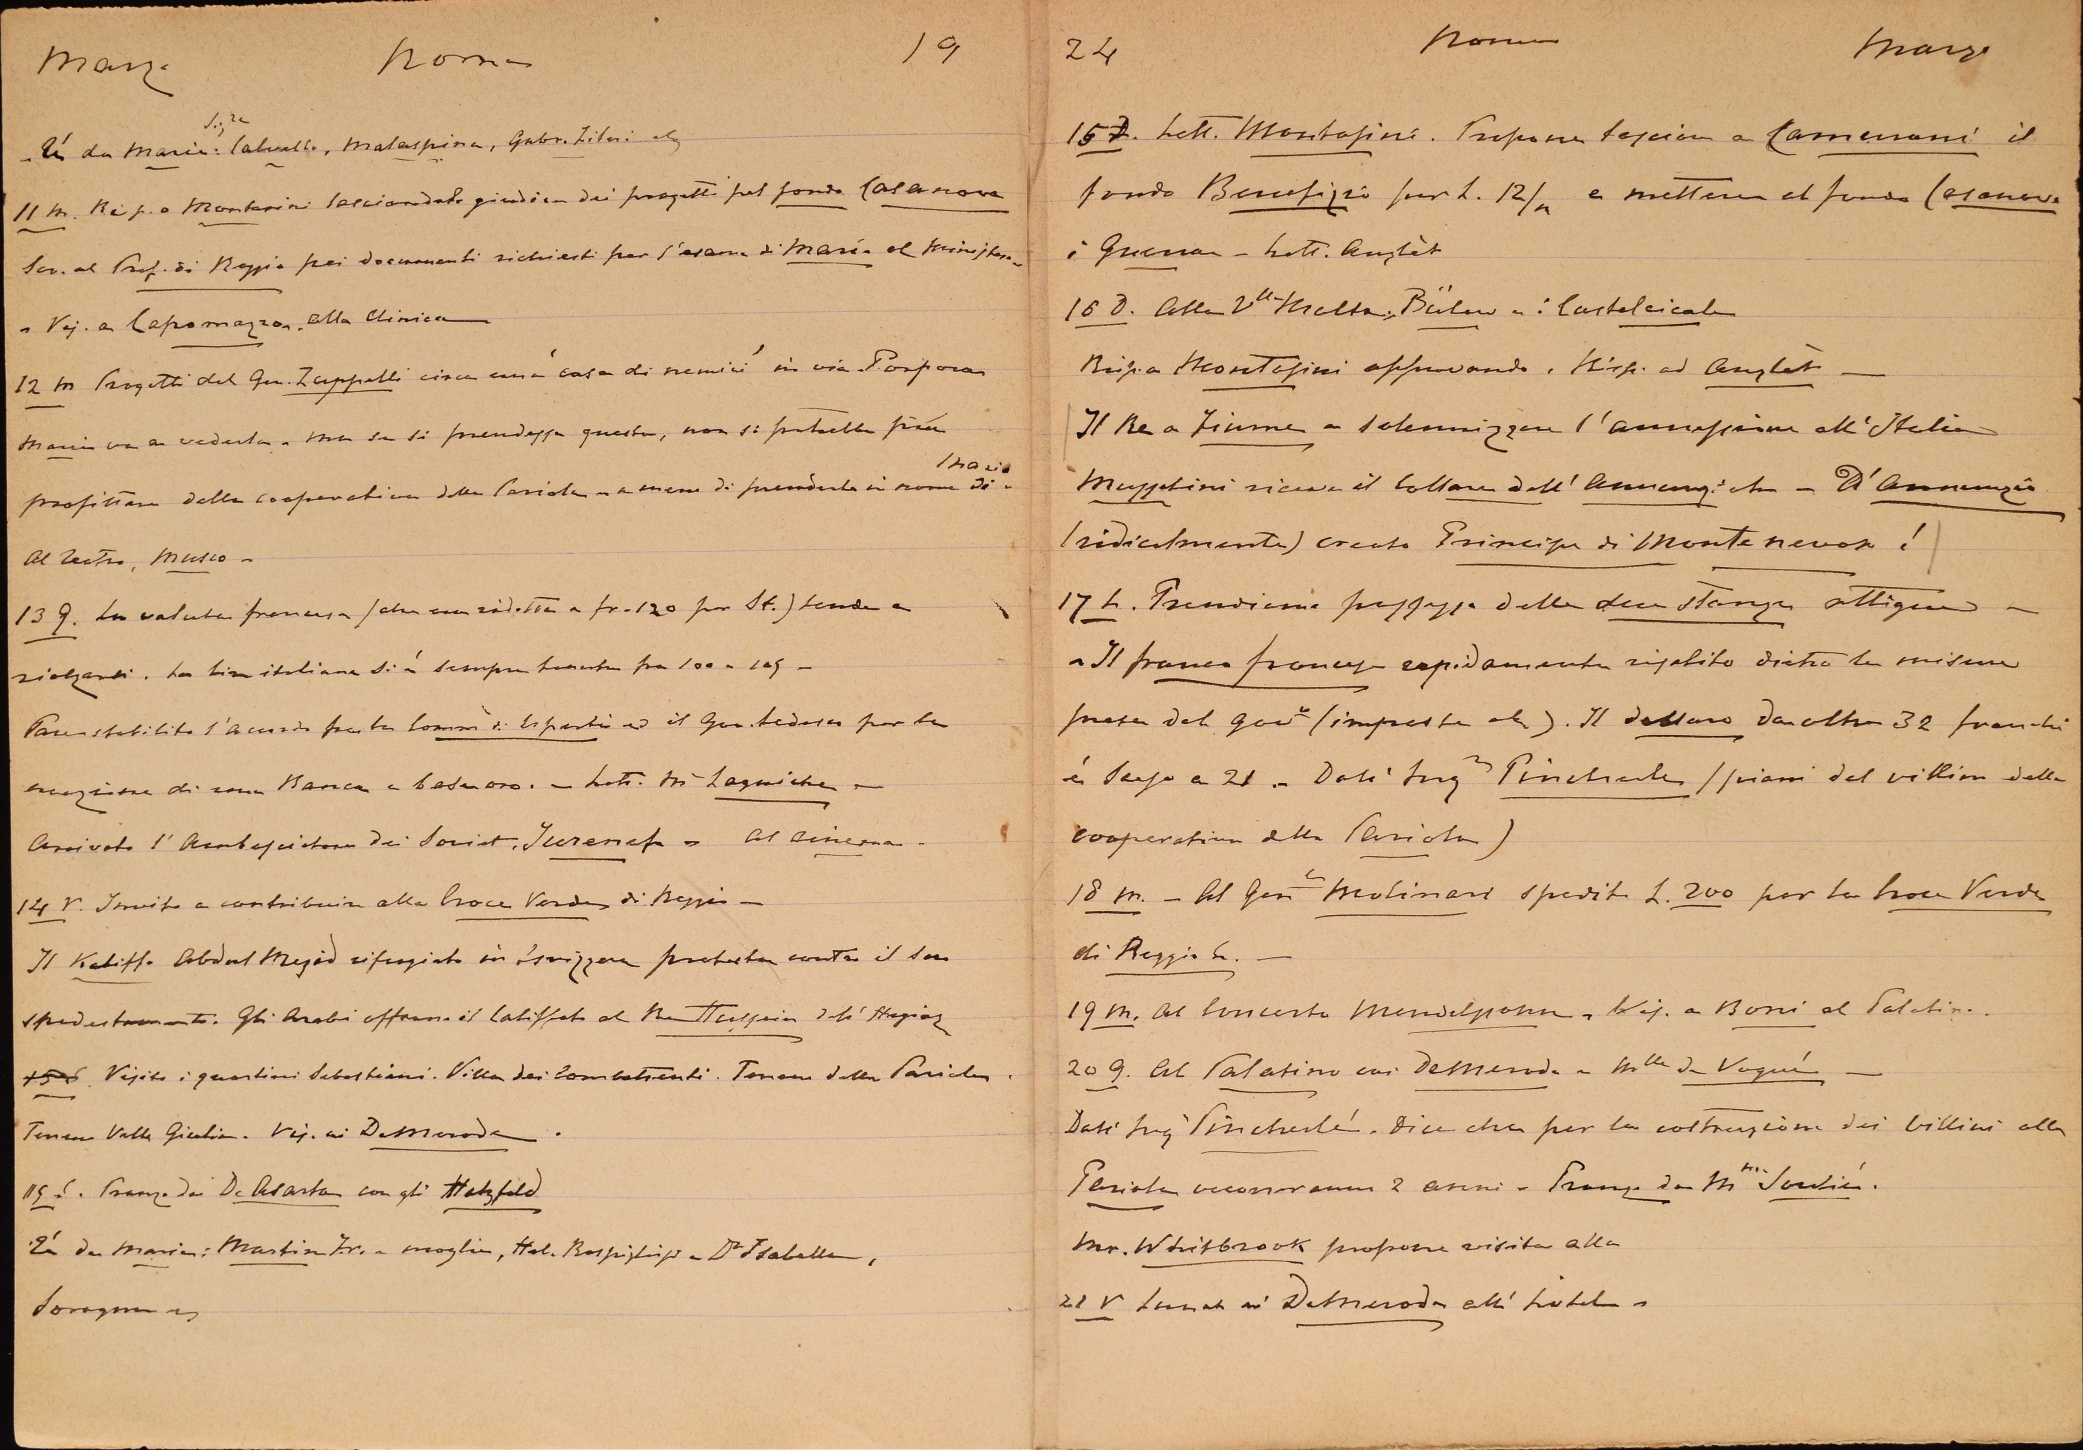 Marzo Roma 19
- Té da Maria: Sig.re Calvello, Malaspina, Gabr. Zileri etc
11 M. Risp. a Montasini lasciandolo giudice dei progetti pel fondo Casanova
Scr. al Prof. di Reggio pei documenti richiesti per l'esame di Maria al Ministero -
- Vis. a Capomazza. alla clinica
12 M Progetti del Gen. Zuppelli circa una casa di nemici in via Porpora
Maria va a vederla - ma se si prendesse questa, non si potrebbe più
profittare della cooperativa della Pariola - a meno di prenderla in nome di Maria -
Al teatro, Museo -
13 G. La valuta francese (che era ridotta a fr. 120 per St.) tende a
rialzarsi. La lira italiana si è sempre tenuta fra 100 e 105 -
Pare stabilito l'accordo fra la Comm. di Esperti ed il Gov. tedesco per la
creazione di una Banca a base oro. - Lett. Mr Laguiche -
Arrivato l'Ambasciatore dei Soviet, Jurenef - Al cinema -
14 V. Invito a contribuire alla Croce Verde di Reggio -
Il Kaliffo Abdul Megid rifugiato in isvizzera protesta contro il suo
spodestamento. Gli Arabi offrono il Califfato al Re Hussein dell'Hegiaz
15 S. Visito i quartieri Sebastiani. Villa dei Combattenti. Terreno della Pariola.
Terreno Valle Giulia. Vis. ai De Merode.
15 S. Pranzo dai De Asarta con gli Hatzfeld
Té da Maria: Martin Fr. e moglie, Hel. Rospigliosi e Da Isabella,
Soragna etc
24 Roma Marzo
15 D. Lett. Montasini. Propone lasciare a Camerani il
fondo Benefizio per L. 12/m e mettere al fondo Casanova
i Guerra - Lett. Anglét
16 D. Alla Vlla Malta, Bülow e i Castelcicala
Risp. a Montasini approvando. Risp. ad Anglét -
Il Re a Fiume a solennizzare l'annessione all'Italia
Mussolini riceve il Collare dell'Annunziata - D'Annunzio
(ridicolmente) creato Principe di Monte nevoso!
17 L. Prendiamo possesso delle due stanze attigue -
- Il franco francese rapidamente risalito dietro le misure
prese dal govo (imposte etc). Il dollaro da oltre 32 franchi
è sceso a 21 - Dall'Ing Pincherle (piani del villino della
cooperativa della Pariola)
18 M. - Al Gen Molinari spedito L. 200 per la Croce Verde
di Reggio E. -
19 M. Al Concerto Mendelssohn - Vis. a Boni al Palatino.
20 G. Al Palatino coi De Merode e Mlle de Vogué -
Dall'Ing Pincherle. Dice che per la costruzione dei villini alla
Pariola occorreranno 2 anni - Pranzo da Mme Soulié.
Mr. Whitbrook propone visita alla
21 V Lunch ai De Merode all'hotel -